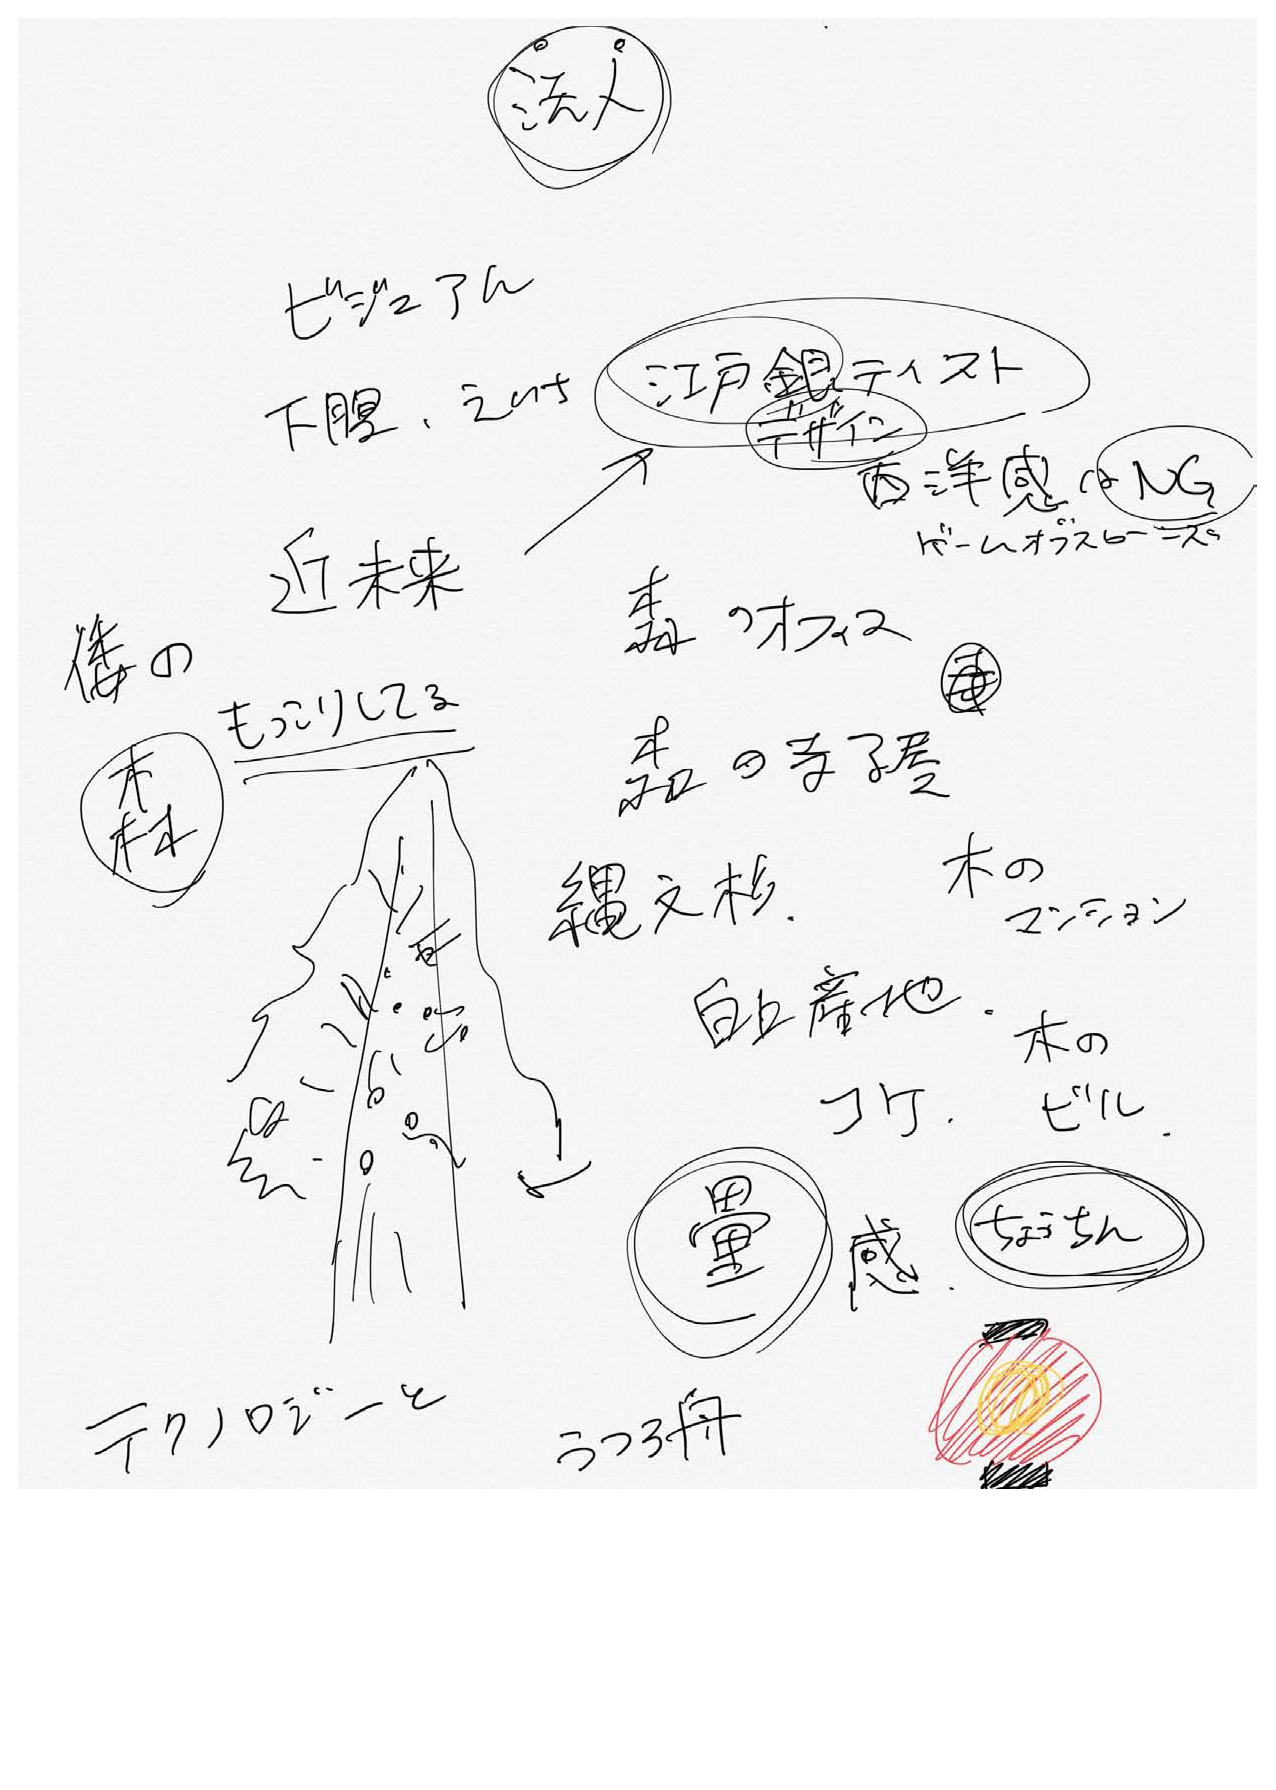 法人
ビジュアル
下腹、えいち
江戸銀ティスト
デザイン
西洋感はNG
ゲームオブスローンズ
近未来
倭の
森
もっこりしてる
森のオフィス
森の寺子屋
縄文杉.
木の
マンション
白上産地.
コケ.
木の
ビル.
畳感.
ちょうちん
テクノロジーと
うつろ舟